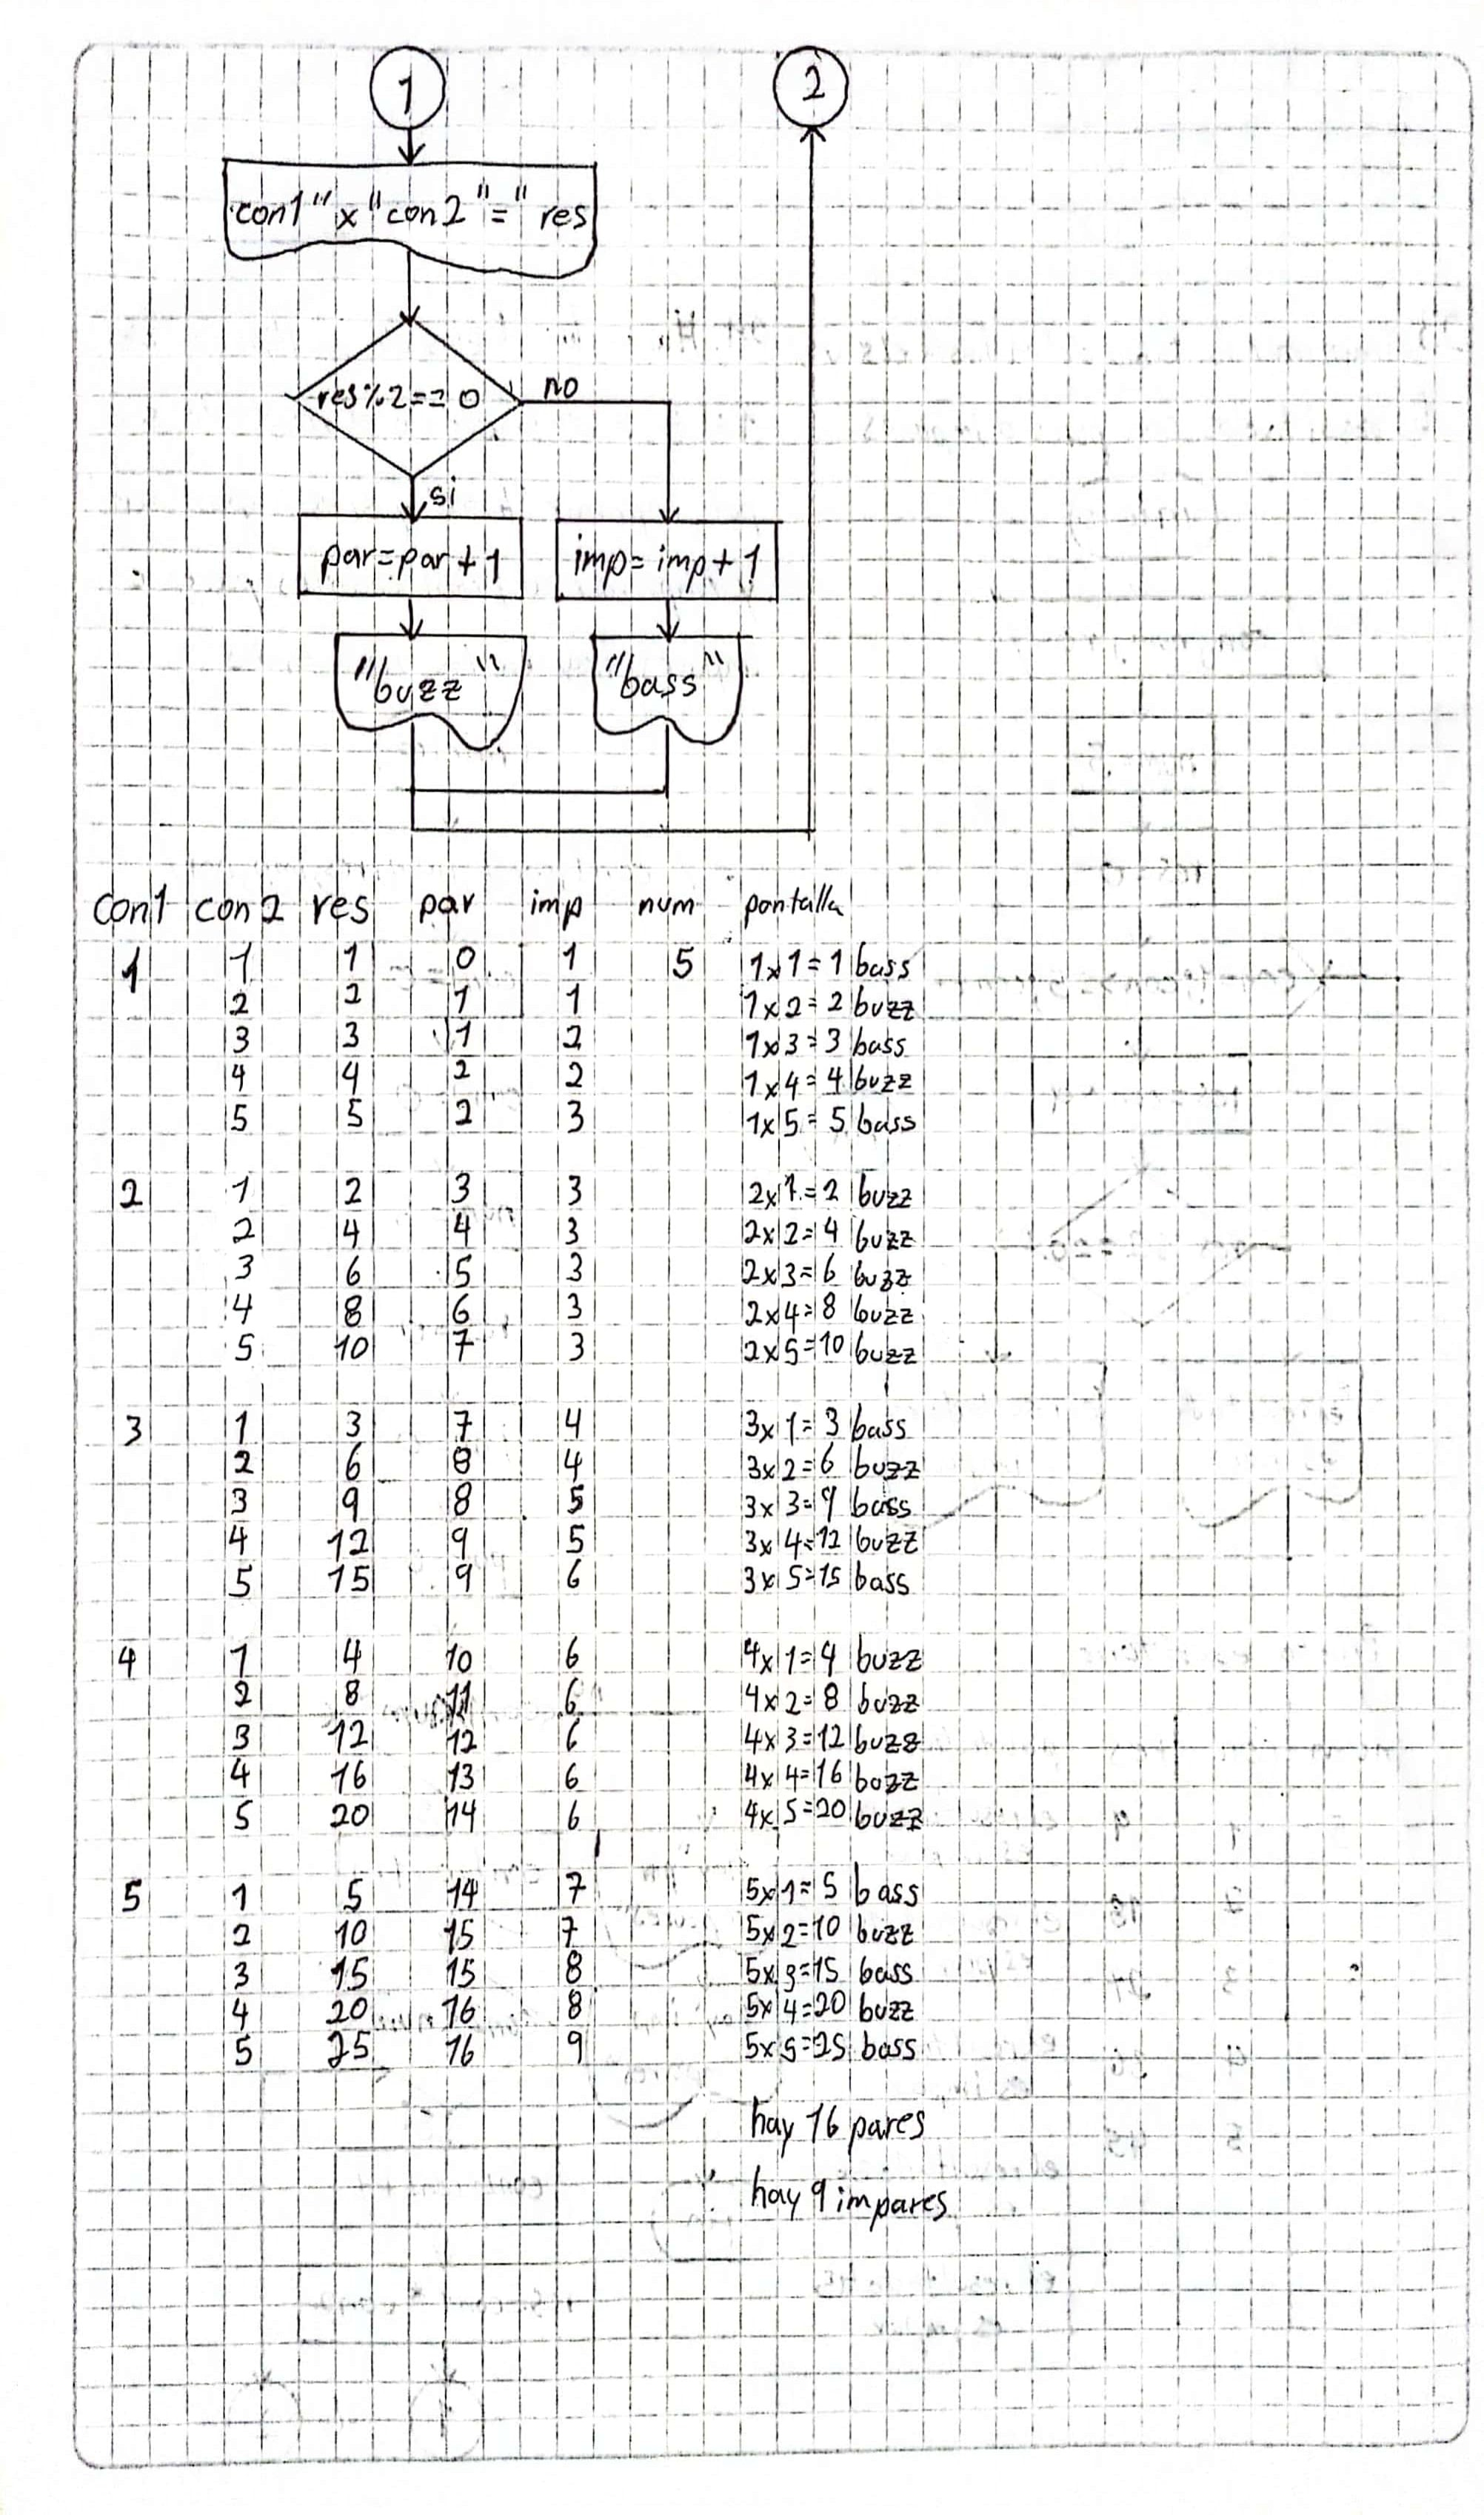 1
2
con1 "x" con2 "=" res
res%2==0
no
si
par=par+1
imp=imp+1
"buzz"
"bass"
con1 con2 res par imp num pantalla
1 1 1 0 1 5 1x1=1 bass
2 2 1 1 1x2=2 buzz
3 3 1 2 1x3=3 bass
4 4 2 2 1x4=4 buzz
5 5 2 3 1x5=5 bass
2 1 2 3 3 2x1=2 buzz
2 4 4 3 2x2=4 buzz
3 6 5 3 2x3=6 buzz
4 8 6 3 2x4=8 buzz
5 10 7 3 2x5=10 buzz
3 1 3 7 4 3x1=3 bass
2 6 8 4 3x2=6 buzz
3 9 8 5 3x3=9 bass
4 12 9 5 3x4=12 buzz
5 15 9 6 3x5=15 bass
4 1 4 10 6 4x1=4 buzz
2 8 11 6 4x2=8 buzz
3 12 12 6 4x3=12 buzz
4 16 13 6 4x4=16 buzz
5 20 14 6 4x5=20 buzz
5 1 5 14 7 5x1=5 bass
2 10 15 7 5x2=10 buzz
3 15 15 8 5x3=15 bass
4 20 16 8 5x4=20 buzz
5 25 16 9 5x5=25 bass
hay 16 pares
hay 9 impares